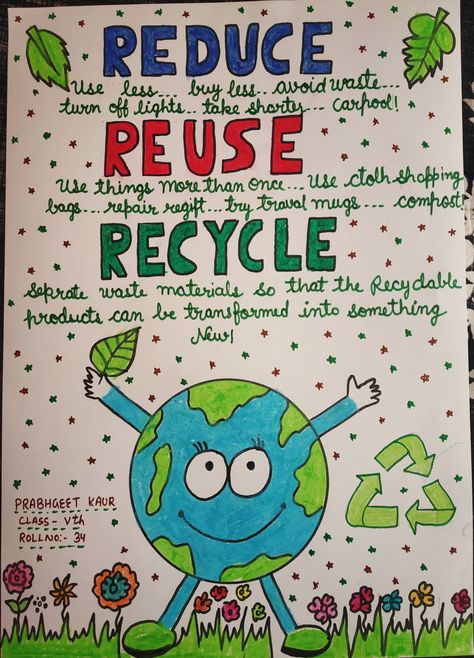 REDUCE
Use less... buy less.. avoid waste...
turn off lights.. take shorter... carpool!
REUSE
Use things more than once... Use ctolh shopping
bags... repair regift.. try traval mugs.... compost!
RECYCLE
Seprate waste materials so that the Recydable
products can be transformed into something
New!
PRABHGEET KAUR
CLASS - Vth
ROLLNO:- 34